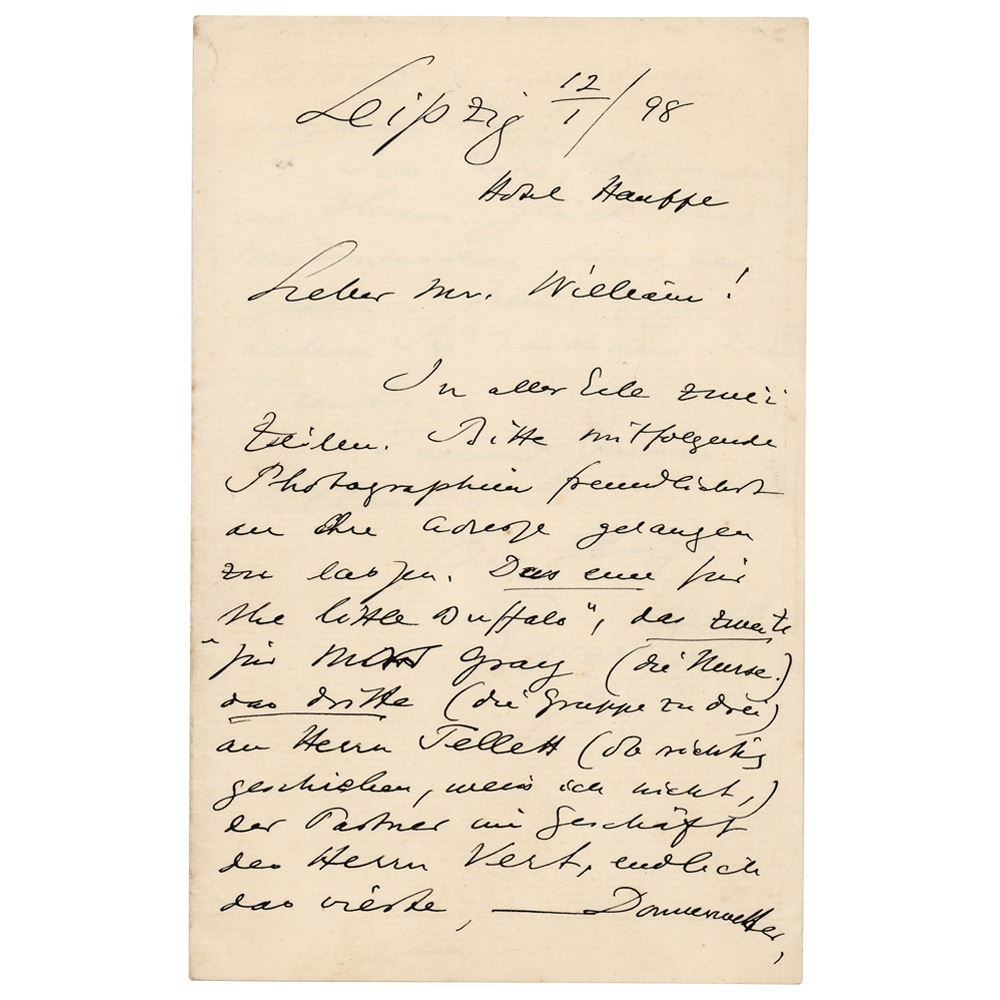 Leipzig 12/1/98
Hotel Hauffe
Lieber Mr. William!
In aller Eile zwei
Zeilen. Bitte mitfolgende
Photographien freundlichst
an Ihre Adresse gelangen
zu lassen. Das eine für
the little Buffalo", das zweite
"für Gray (die Nurse.)
das dritte (die Gruppe zu drei)
an Herrn Tellett (ob richtig
geschieben, weiss ich nicht,)
der Partner im Geschäft
des Herrn Vert, endlich
das vierte, — Donnerwetter,